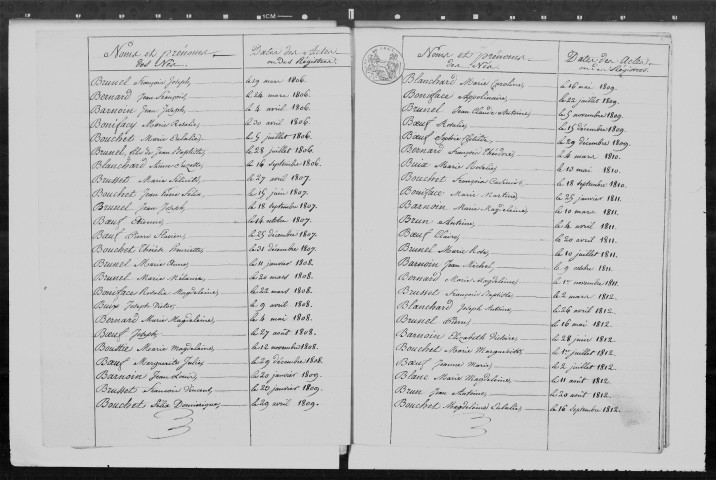 Noms et prénoms Dates des Actes
des Nés. ou des Régistres.
Brunel François Joseph, le 19 mars 1806.
Bernard Jean François, le 24 mars 1806.
Barnoin Jean Joseph, le 4 avril 1806.
Bonifacy Marie Rosalie, le 20 avril 1806.
Bouchet Marie Eulalie, le 5 juillet 1806.
Brunel, fils de Jean Baptiste, le 28 juillet 1806.
Blanchard le 16 septembre 1806.
Brusset Marie Félicité, le 27 avril 1807.
Bouchet Jean Pierre Félix, le 15 juin 1807.
Brunel Jean Joseph, le 18 septembre 1807.
Bœuf Etienne, le 14 octobre 1807.
Bœuf Pierre le 25 décembre 1807.
Bouchet Thérèse Henriette, le 31 décembre 1807.
Brunel Marie Anne, le 11 janvier 1808.
Brunel Marie Mélanie, le 20 mars 1808.
Boniface Rosalie Magdeleine, le 22 mars 1808.
Buix Joseph Victor, le 9 avril 1808.
Bernard Marie Magdeleine, le 4 mai 1808.
Bœuf Joseph, le 27 août 1808.
Marie Magdeleine, le 12 novembre 1808.
Bœuf Marguerite Julie, le 29 décembre 1808.
Barnoin Jean Louis, le 20 janvier 1809.
Brusset François Vincent, le 20 janvier 1809.
Bouchet Félix Dominique, le 29 avril 1809.
Noms et prénoms Dates des Actes
des Nés. ou des Régistres.
Blanchard Marie Caroline, le 16 mai 1809.
Boniface Appolinaire, le 22 juillet 1809.
Brunel Jean Claude Antoine, le 5 novembre 1809.
Bœuf Rosalie, le 15 décembre 1809.
Bœuf Sophie le 29 décembre 1809.
Bernard François Théodore, le 4 mars 1810.
Buix Marie Rosalie, le 13 mai 1810.
Bouchet François Casimir, le 18 septembre 1810.
Boniface Marie Martine, le 25 janvier 1811.
Barnoin Marie Magdeleine, le 10 mars 1811.
Brun Antoine, le 4 avril 1811.
Bœuf Claire, le 20 avril 1811.
Brunel Marie Rose, le 10 juillet 1811.
Barnoin Jean Michel, le 9 octobre 1811.
Bernard Marie Magdeleine, le 1er novembre 1811.
Brusset François Baptiste, le 2 mars 1812.
Blanchard Joseph Antoine, le 26 avril 1812.
Brunel Pierre, le 16 mai 1812.
Barnoin Elizabeth Victoire, le 28 juin 1812.
Bouchet Marie Marguerite, le 1er juillet 1812.
Bœuf Jeanne Marie, le 2 juillet 1812.
Blanc Marie Magdeleine, le 11 août 1812.
Brun Jean Antoine, le 20 août 1812.
Bouchet Magdeleine Eulalie, le 16 septembre 1812.